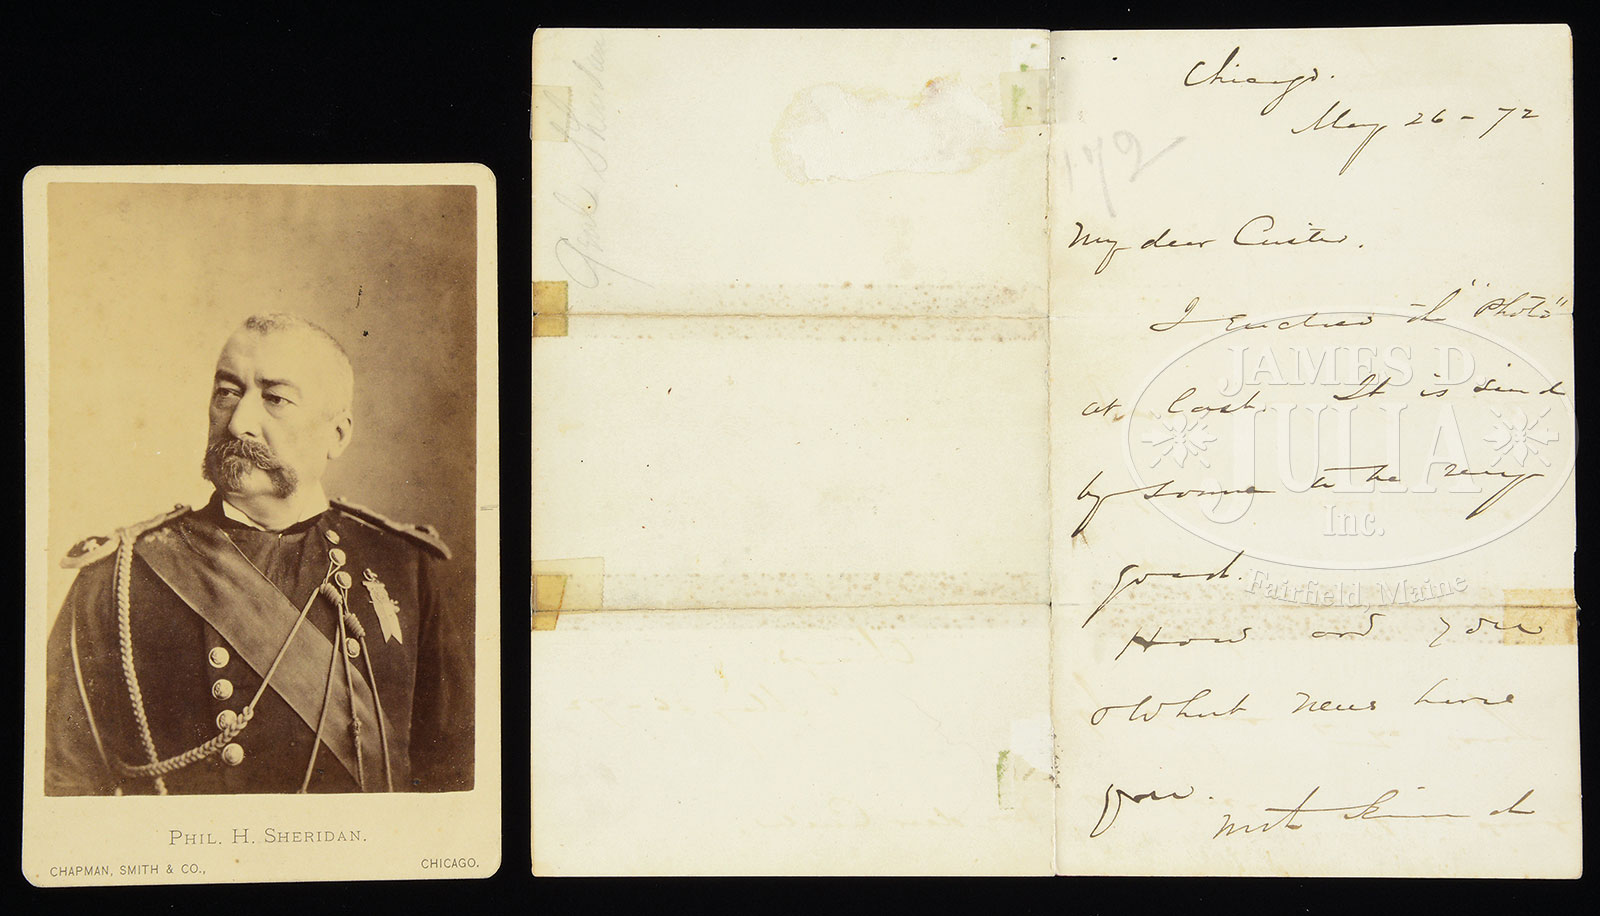 PHIL. H. SHERIDAN.
CHAPMAN, SMITH & CO.,
CHICAGO.
Genl Sheridan
Chicago.
May 26 - 72
172
My dear Custer.
I enclose the "Photo"
at last. It is said
by some to be very
good.
How are you
& What news have
you.
JAMES D.
JULIA
Inc.
Fairfield, Maine